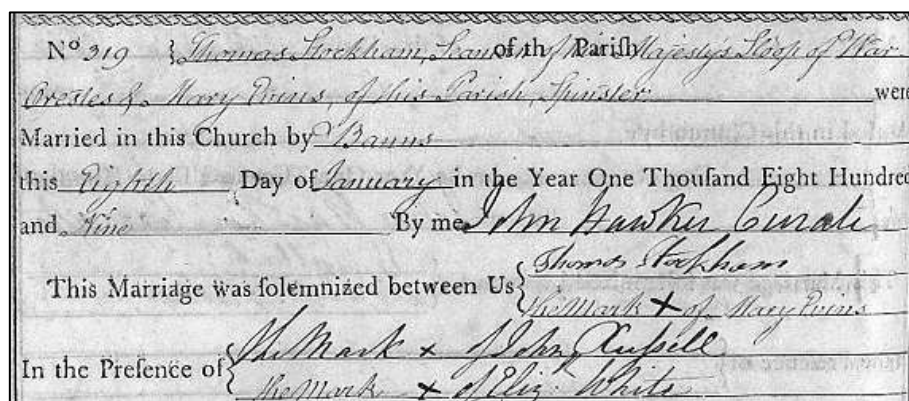 No 319 { Thomas Stockham, Seaman of th Parish Majesty's Sloop of War
Orestes & Mary Evins, of this Parish, Spinster were
Married in this Church by Banns
this Eighth Day of January in the Year One Thousand Eight Hundred
and Nine By me John Hawker Curate
This Marriage was solemnized between Us { Thomas Stockham
The Mark X of Mary Evins
In the Presence of { The Mark x of John Russell
The Mark x of Eliz. White